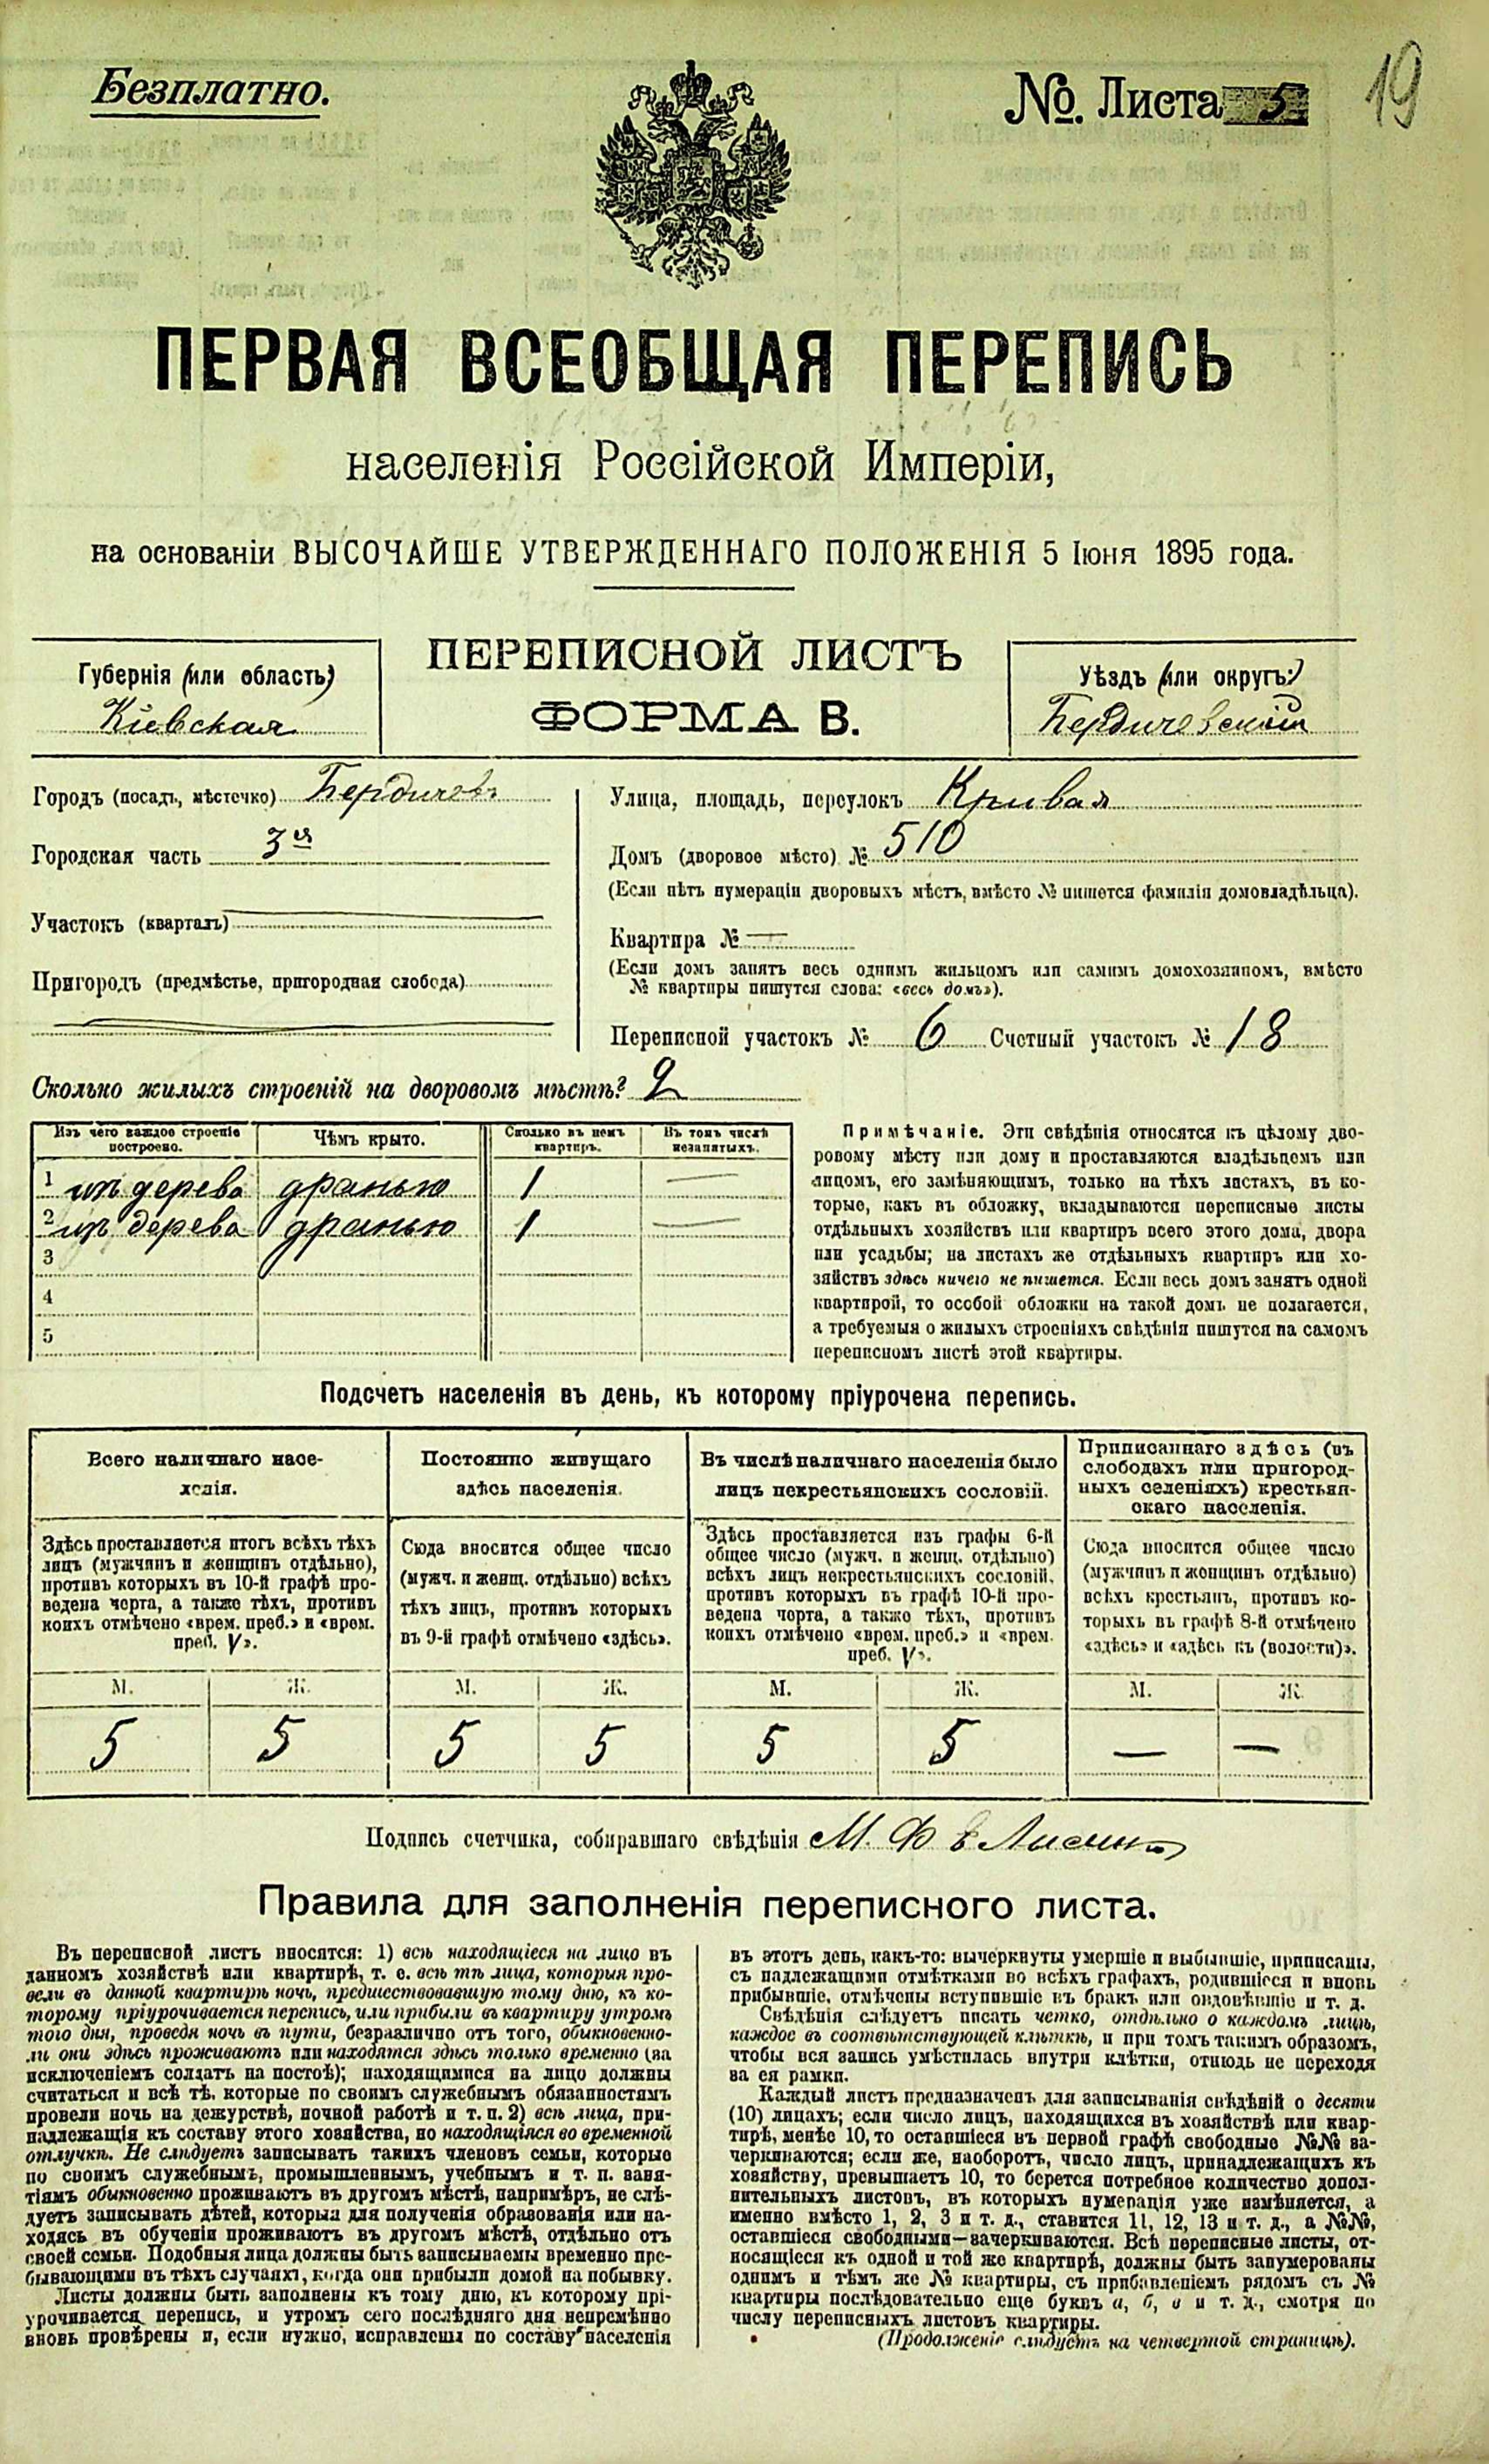 Безплатно.
№. Листа 5
19
ПЕРВАЯ ВСЕОБЩАЯ ПЕРЕПИСЬ
населенія Россійской Имперіи,
на основаніи ВЫСОЧАЙШЕ УТВЕРЖДЕННАГО ПОЛОЖЕНІЯ 5 Іюня 1895 года.
Губернія (или область)
Кіевская
ПЕРЕПИСНОЙ ЛИСТЪ
ФОРМА В.
Уѣздъ (или округъ:)
Бердичевскій
Городъ (посадъ, мѣстечко) Бердичевъ
Городская часть 3я
Участокъ (кварталъ)
Пригородъ (предмѣстье, пригородная слобода)
Улица, площадь, переулокъ Кривая
Домъ (дворовое мѣсто) № 510
(Если нѣтъ нумераціи дворовыхъ мѣстъ, вмѣсто № пишется фамилія домовладѣльца).
Квартира № —
(Если домъ занятъ весь однимъ жильцомъ или самимъ домохозяиномъ, вмѣсто
№ квартиры пишутся слова: «весь домъ»).
Переписной участокъ № 6 Счетный участокъ № 18
Сколько жилыхъ строеній на дворовомъ мѣстѣ? 2
Изъ чего каждое строеніе построено.
Чѣмъ крыто.
Сколько въ немъ квартиръ.
Въ томъ числѣ незанятыхъ.
1 изъ дерева дранью 1 —
2 изъ дерева дранью 1 —
3
4
5
Примѣчаніе. Эти свѣдѣнія относятся къ цѣлому дво-
ровому мѣсту или дому и проставляются владѣльцемъ или
лицомъ, его замѣняющимъ, только на тѣхъ листахъ, въ ко-
торые, какъ въ обложку, вкладываются переписные листы
отдѣльныхъ хозяйствъ или квартиръ всего этого дома, двора
или усадьбы; на листахъ же отдѣльныхъ квартиръ или хо-
зяйствъ здѣсь ничего не пишется. Если весь домъ занятъ одной
квартирой, то особой обложки на такой домъ не полагается,
а требуемыя о жилыхъ строеніяхъ свѣдѣнія пишутся на самомъ
переписномъ листѣ этой квартиры.
Подсчетъ населенія въ день, къ которому пріурочена перепись.
Всего наличнаго насе-
ленія.
Здѣсь проставляется итогъ всѣхъ тѣхъ
лицъ (мужчинъ и женщинъ отдѣльно),
противъ которыхъ въ 10-й графѣ про-
ведена черта, а также тѣхъ, противъ
коихъ отмѣчено «врем. преб.» и «врем.
преб. V».
Постоянно живущаго
здѣсь населенія.
Сюда вносится общее число
(мужч. и женщ. отдѣльно) всѣхъ
тѣхъ лицъ, противъ которыхъ
въ 9-й графѣ отмѣчено «здѣсь».
Въ числѣ наличнаго населенія было
лицъ некрестьянскихъ сословій.
Здѣсь проставляется изъ графы 6-й
общее число (мужч. и женщ. отдѣльно)
всѣхъ лицъ некрестьянскихъ сословій,
противъ которыхъ въ графѣ 10-й про-
ведена черта, а также тѣхъ, противъ
коихъ отмѣчено «врем. преб.» и «врем.
преб. V».
Приписаннаго здѣсь (въ
слободахъ или пригород-
ныхъ селеніяхъ) крестьян-
скаго населенія.
Сюда вносится общее число
(мужчинъ и женщинъ отдѣльно)
всѣхъ крестьянъ, противъ ко-
торыхъ въ графѣ 8-й отмѣчено
«здѣсь» и «здѣсь къ (волости)».
М. Ж. М. Ж. М. Ж. М. Ж.
5 5 5 5 5 5 — —
Подпись счетчика, собиравшаго свѣдѣнія М. Ф.
Правила для заполненія переписного листа.
Въ переписной листъ вносятся: 1) всѣ находящіеся на лицо въ
данномъ хозяйствѣ или квартирѣ, т. е. всѣ тѣ лица, которыя про-
вели въ данной квартирѣ ночь, предшествовавшую тому дню, къ ко-
торому пріурочивается перепись, или прибыли въ квартиру утромъ
того дня, проведя ночь въ пути, безразлично отъ того, обыкновенно-
ли они здѣсь проживаютъ или находятся здѣсь только временно (за
исключеніемъ солдатъ на постоѣ); находящимися на лицо должны
считаться и всѣ тѣ, которые по своимъ служебнымъ обязанностямъ
провели ночь на дежурствѣ, ночной работѣ и т. п. 2) всѣ лица, при-
надлежащія къ составу этого хозяйства, но находящіяся во временной
отлучкѣ. Не слѣдуетъ записывать такихъ членовъ семьи, которые
по своимъ служебнымъ, промышленнымъ, учебнымъ и т. п. заня-
тіямъ обыкновенно проживаютъ въ другомъ мѣстѣ, напримѣръ, не слѣ-
дуетъ записывать дѣтей, которыя для полученія образованія или на-
ходясь въ обученіи проживаютъ въ другомъ мѣстѣ, отдѣльно отъ
своей семьи. Подобныя лица должны быть записываемы временно пре-
бывающими въ тѣхъ случаяхъ, когда они прибыли домой на побывку.
Листы должны быть заполнены къ тому дню, къ которому прі-
урочивается перепись, и утромъ сего послѣдняго дня непремѣнно
вновь провѣрены и, если нужно, исправлены по составу населенія
въ этотъ день, какъ-то: вычеркнуты умершіе и выбывшіе, приписаны,
съ надлежащими отмѣтками во всѣхъ графахъ, родившіеся и вновь
прибывшіе, отмѣчены вступившіе въ бракъ или овдовѣвшіе и т. д.
Свѣдѣнія слѣдуетъ писать четко, отдѣльно о каждомъ лицѣ,
каждое въ соотвѣтствующей клѣткѣ, и при томъ такимъ образомъ,
чтобы вся запись умѣстилась внутри клѣтки, отнюдь не переходя
за ея рамки.
Каждый листъ предназначенъ для записыванія свѣдѣній о десяти
(10) лицахъ; если число лицъ, находящихся въ хозяйствѣ или квар-
тирѣ, менѣе 10, то оставшіеся въ первой графѣ свободные №№ за-
черкиваются; если же, наоборотъ, число лицъ, принадлежащихъ къ
хозяйству, превышаетъ 10, то берется потребное количество допол-
нительныхъ листовъ, въ которыхъ нумерація уже измѣняется, а
именно вмѣсто 1, 2, 3 и т. д., ставится 11, 12, 13 и т. д., а №№,
оставшіеся свободными—зачеркиваются. Всѣ переписные листы, от-
носящіеся къ одной и той же квартирѣ, должны быть занумерованы
однимъ и тѣмъ же № квартиры, съ прибавленіемъ рядомъ съ №
квартиры послѣдовательно еще буквъ а, б, в и т. д., смотря по
числу переписныхъ листовъ квартиры.
(Продолженіе слѣдуетъ на четвертой страницѣ).